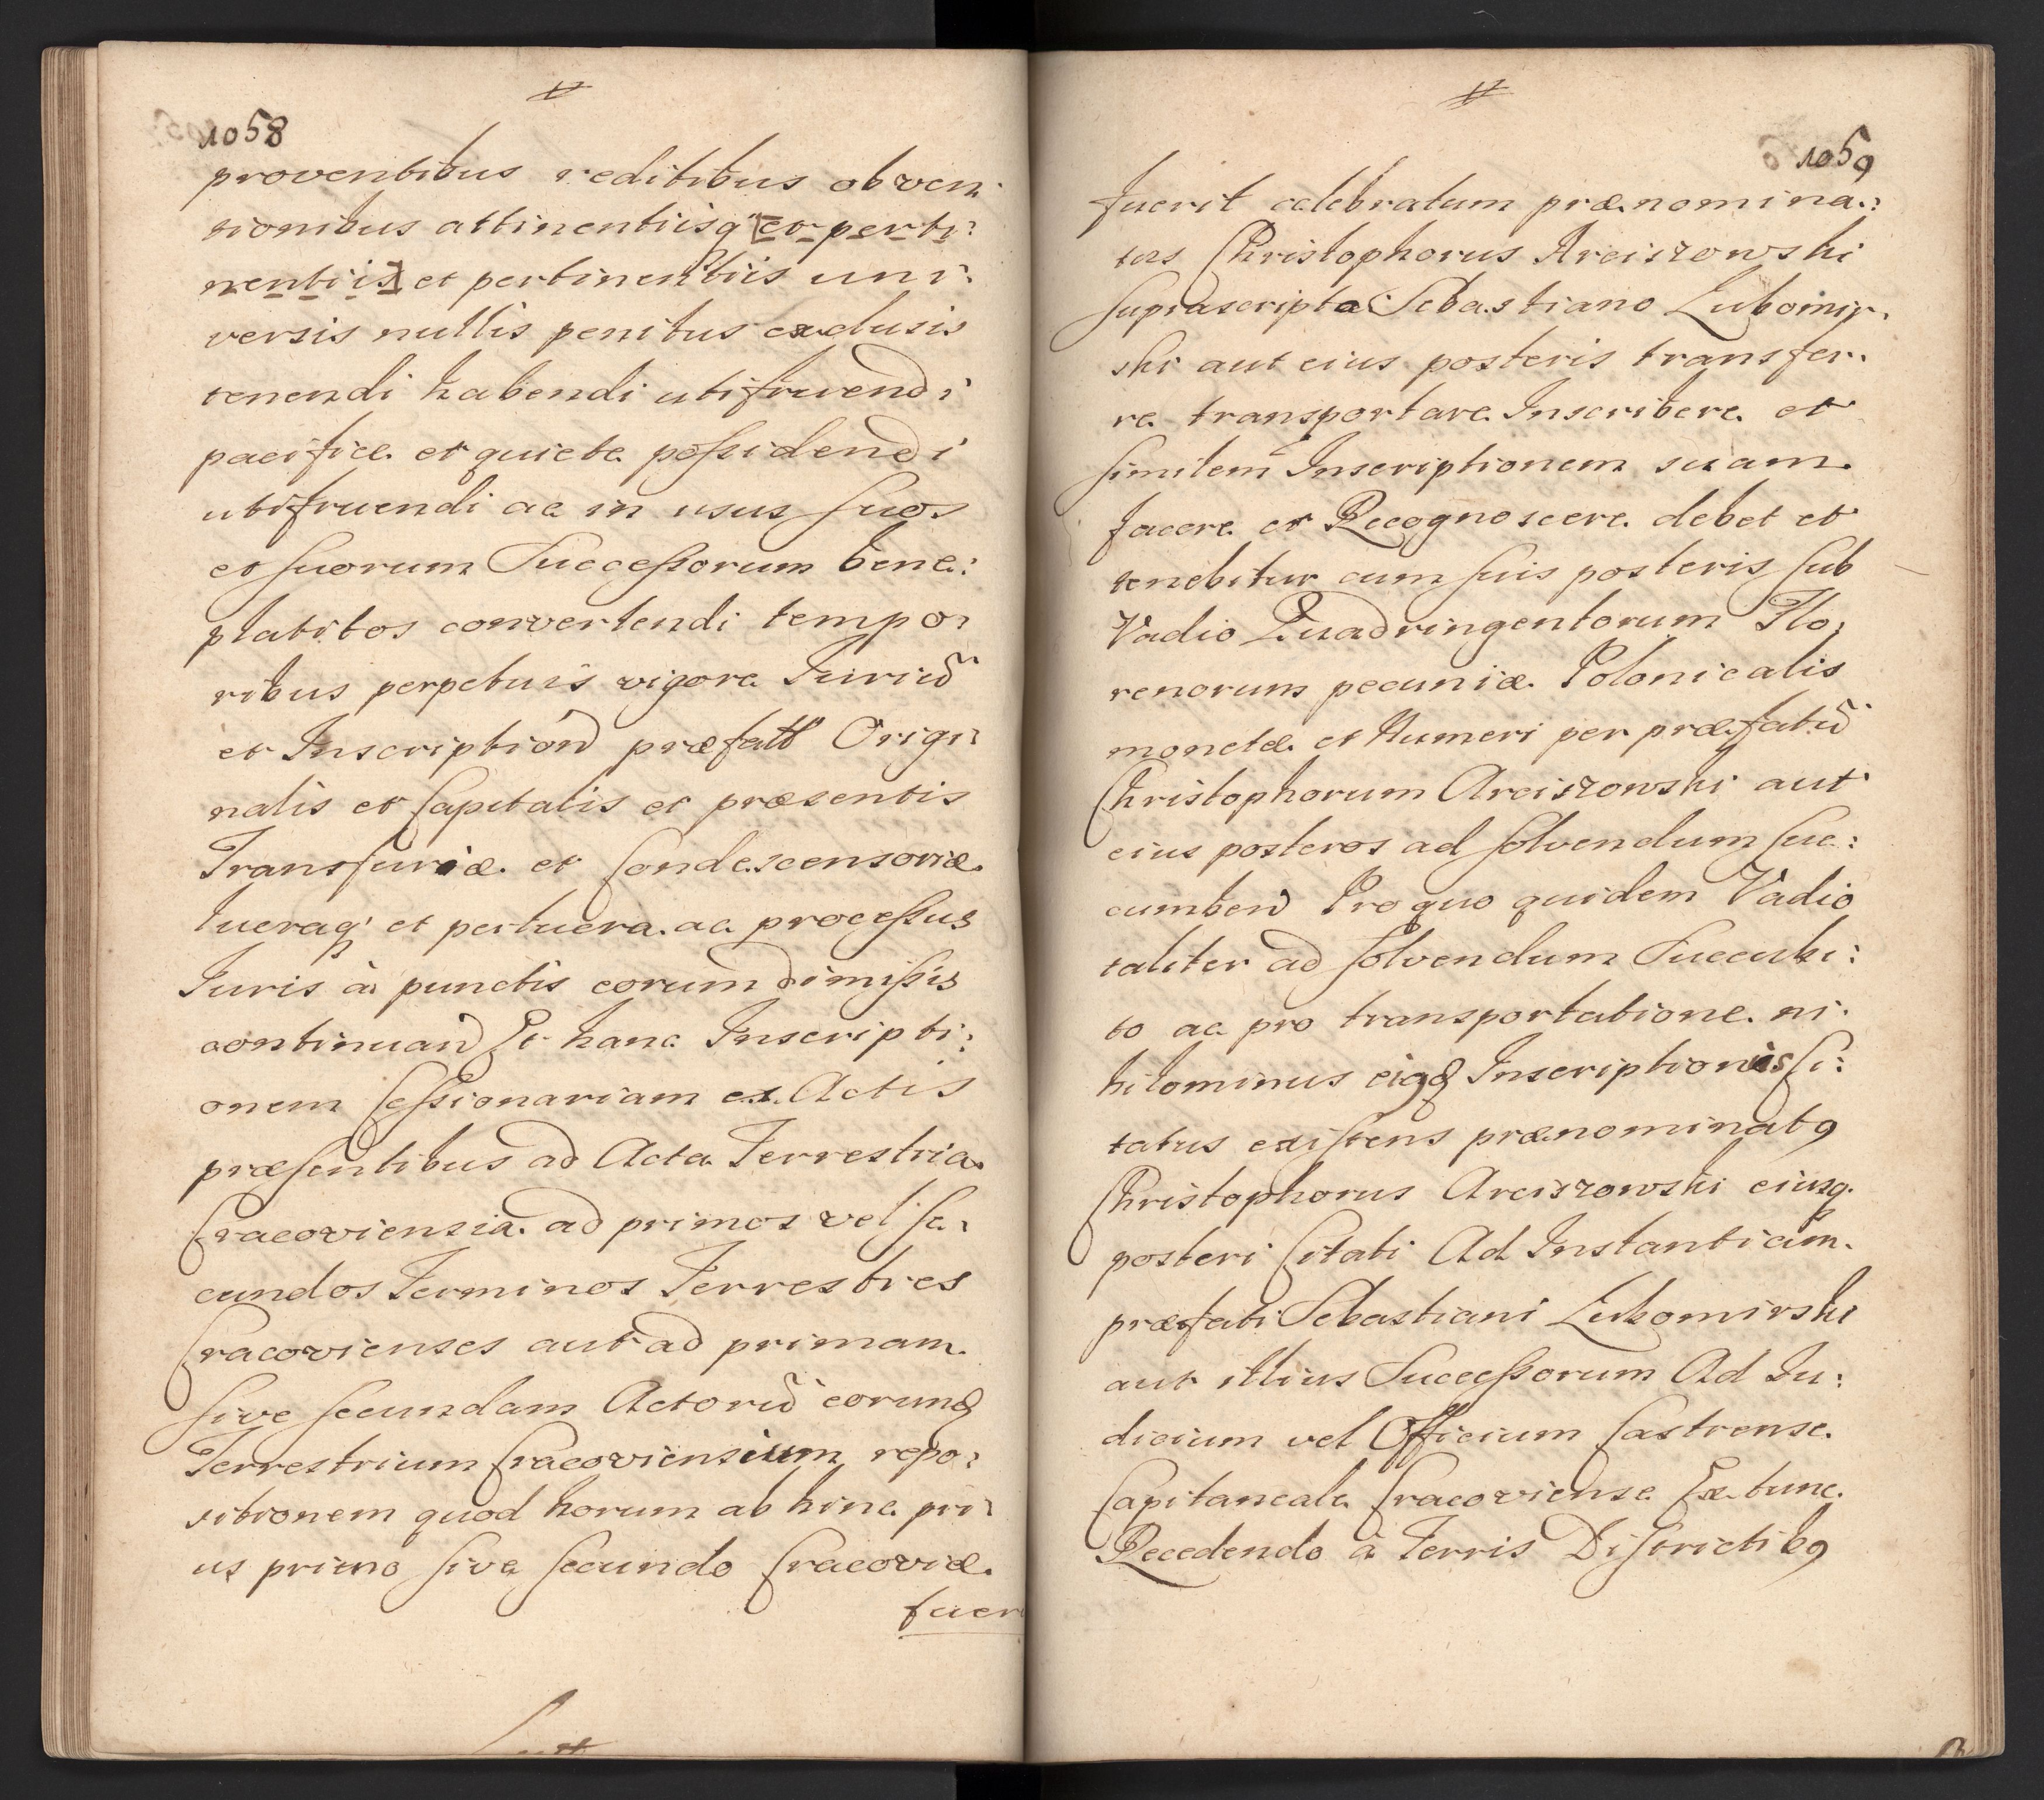 1058
proventibus reditibus obven:
tionibus attinentiisq [et perti:
nentiis] et pertinentiis uni:
versis nullis penitus exclusis
tenendi habendi utifruendi
pacifice et quiete possidendi
utifruendi ac in usus suos
et suorum Successorum bene:
platitos convertendi tempo:
ribus perpetuis vigore Juriũ
et Inscriptionũ præfatt Origi:
nalis et Capitalis et præsentis
Transfusiæ et Condescensoriæ
tueraq et pertuera ac processus
Juris à punctis eorum dimissis
continuanđ Et hanc Inscripti:
onem Cessionariam ex Actis
præsentibus ad Acta Terrestria
Cracoviensia ad primos vel se:
cundos Terminos Terrestres
Cracovienses aut ad primam
sive secundam Actorũ eorunđ
Terrestrium Cracoviensium repo:
sitionem quod horum ab hinc pri:
us primo sive secundo Cracoviæ
fuer
1059
fuerit celebratum prænomina:
tus Christophorus Arciszowski
suprascripto Sebastiano Lubomir:
ski aut eius posteris transfer:
re transportare Inscribere et
similem Inscriptionem suam
facere et Recognoscere debet et
tenebitur cum suis posteris sub
Vadio Quadringentorum Flo:
renorum pecuniæ Polonicalis
monetæ et Numeri per præfatũ
Christophorum Arciszowski aut
eius posteros ad solvendum suc:
cumbenđ Pro quo quidem Vadio
taliter ad solvendum Succubi:
to ac pro transportatione ni:
hilominus eiqđ Inscriptionis Ci:
tatus existens prænominatꝰ
Christophorus Arciszowski eiusq.
posteri Citati Ad Instantiam
præfati Sebastiani Lubomirski
aut illius Successorum Ad Ju:
dicium vel Officium Castrense
Capitaneale Cracoviense Ex tunc
Recedendo à Terris Districtibꝰ